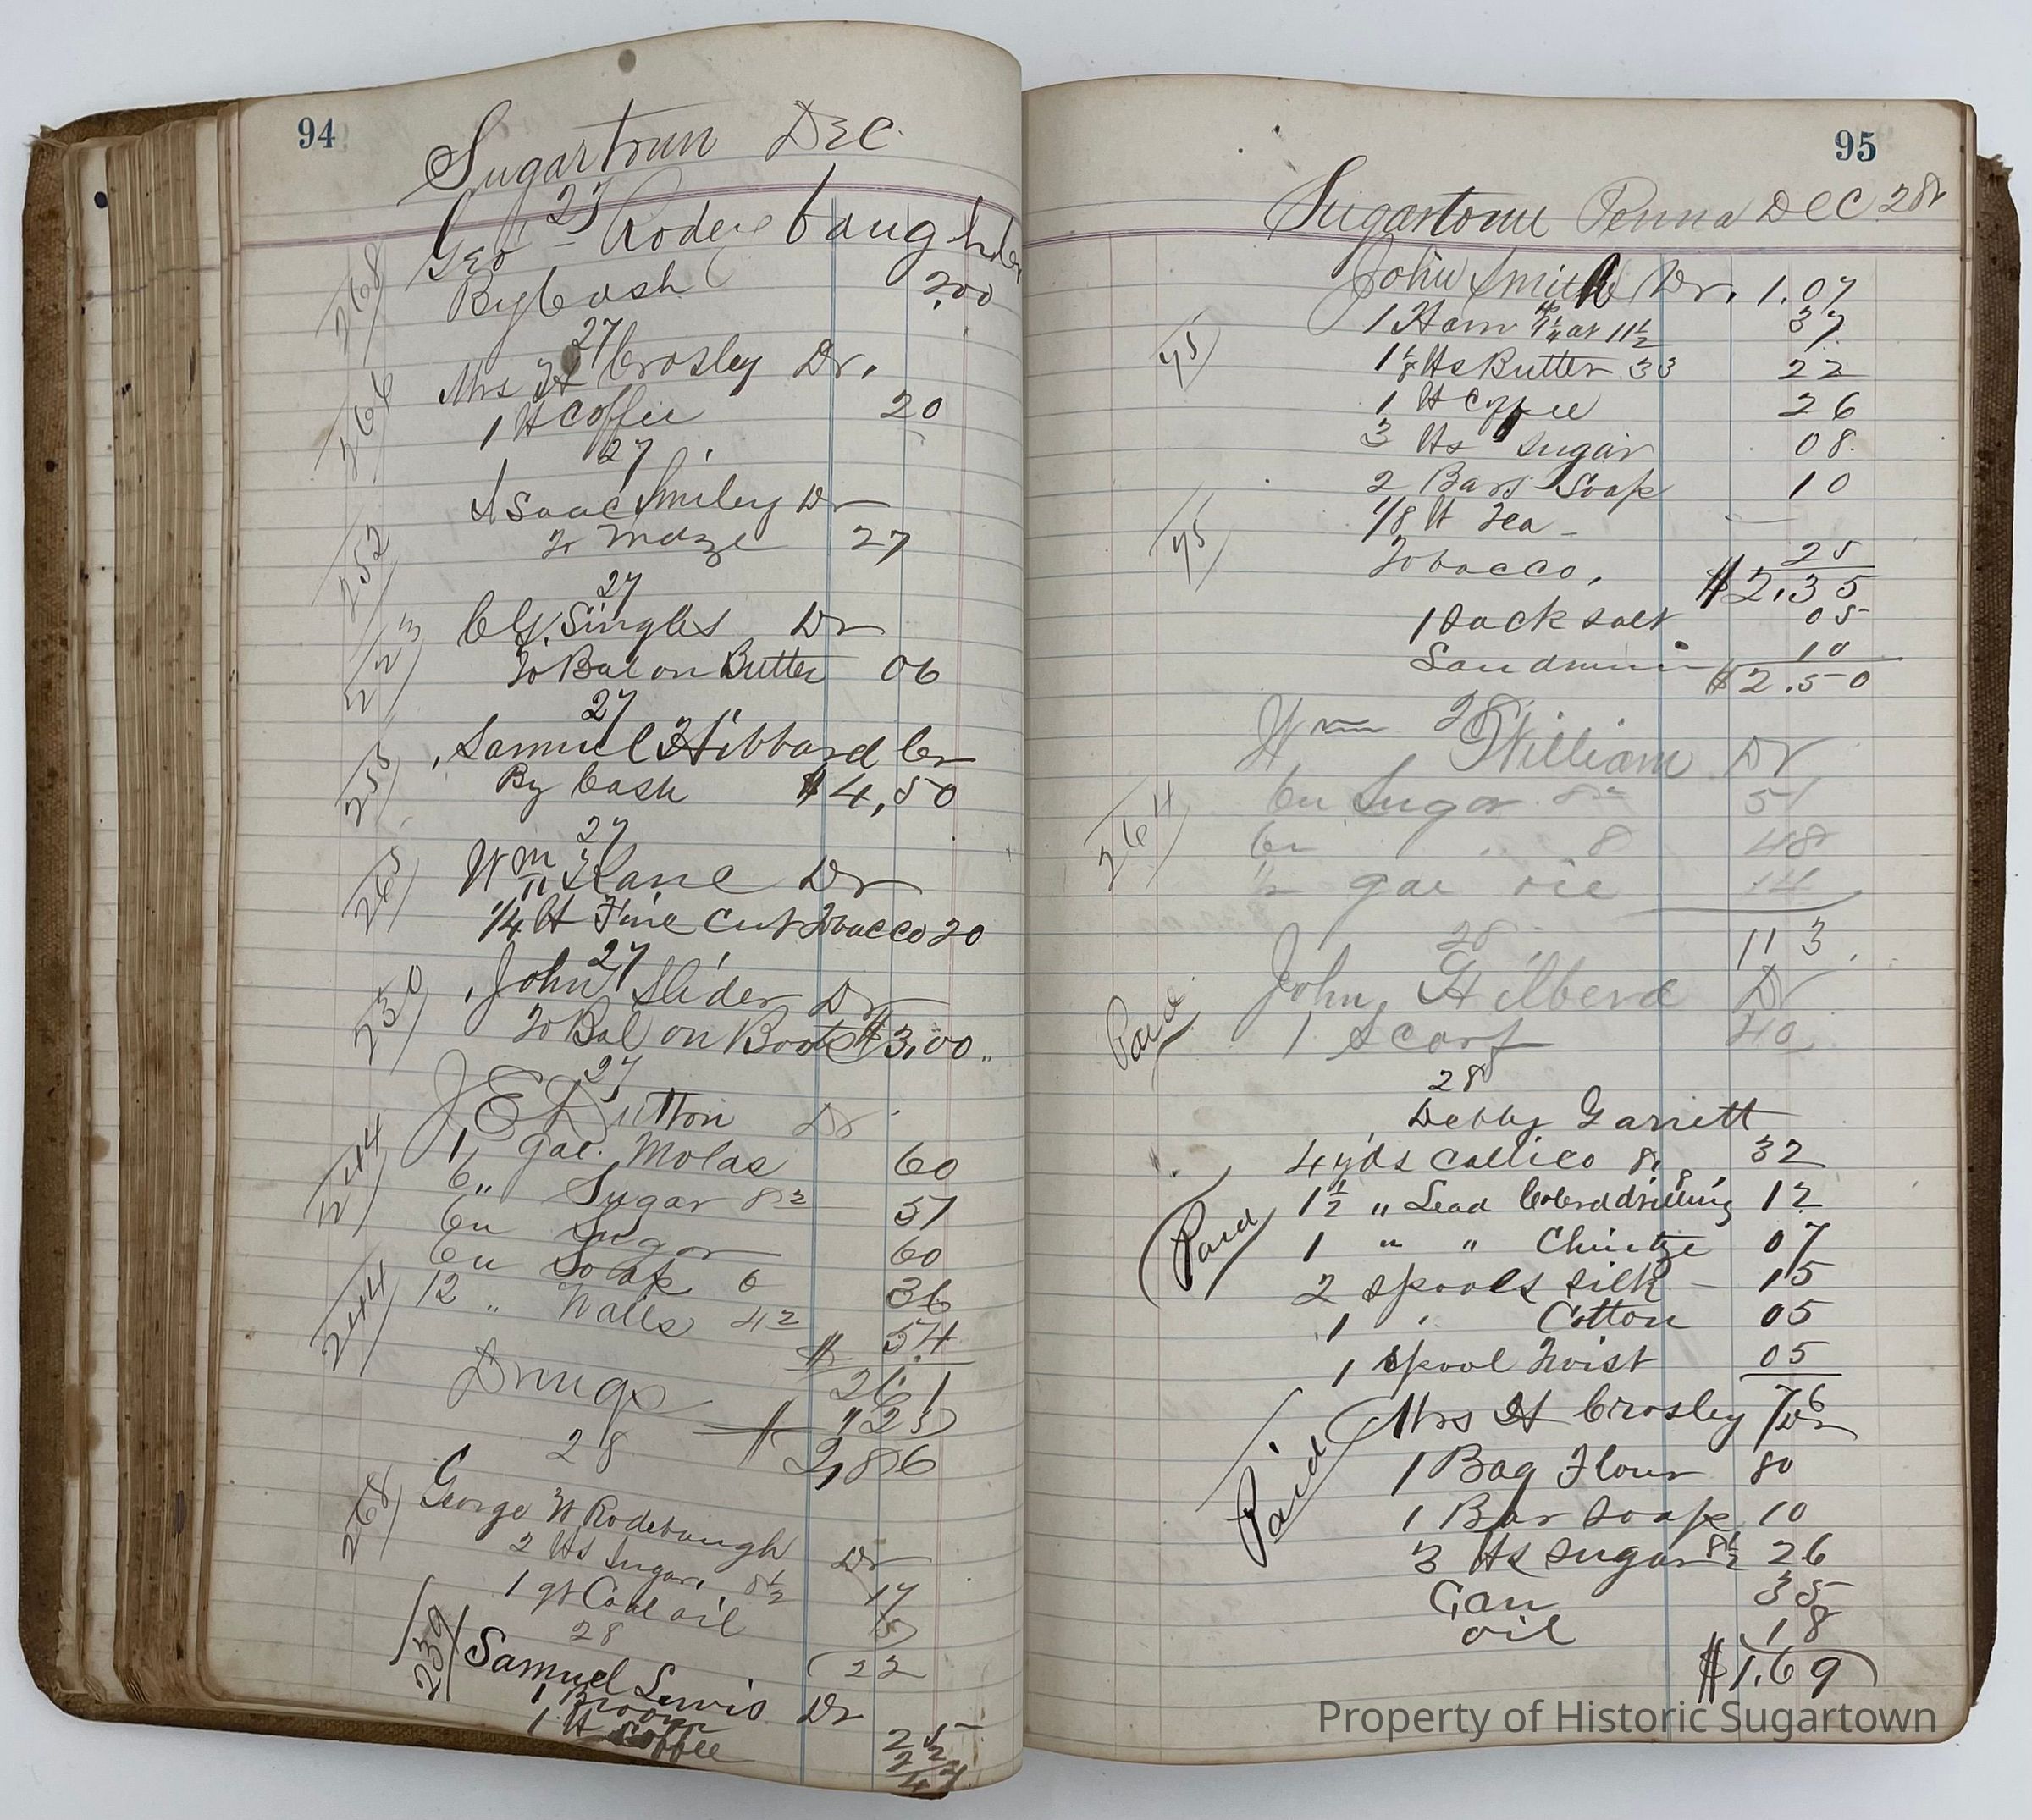 94
Sugartown Dec
27
Geo Rodebaugh
268
By Cash 2.00
27
Mrs H Crosley Dr.
266
1 lt Coffee 20
27
Isaac Smiley Dr
252
To Mdze 27
27
C G. Singles Dr
223
To Bal on Butter 06
27
Samuel Hibbard Cr
255
By Cash $4,50
27
Wm Kane Dr
265
1/4 lt Fine Cut Tobacco 20
27
John Slider Dr
230
To Bal on Boots $3.00
27
J E Dutton Dr
244
1, gal. Molas 60
6 " Sugar 8½ 51
6 " Sugar 60
6 " Soap 6 36
244
12 " Nails 4½ 54
$ 261
Drugs 25
$ 2,86
28
268
George W Rodebaugh Dr
2 lts Sugar, 8½ 17
1 qt Coal oil 5
22
28
239
Samuel Lewis Dr
1 Broom 25
1 lt Coffee 22
95
Sugartown Penna Dec 28
John Smith Dr. 1.07
1 Ham 9¼ at 11½ 37
45
1⅛ lts Butter 33 22
1 lt Coffee 26
3 lts Sugar 08
2 Bars Soap 10
1/8 lt Tea
45
Tobacco, 25
$2.35
1 Sack salt 05
10
$2.50
28
Wm William Dr
6 " Sugar 8½ 51
264
6 " " 8 48
½ gal oil 14
113
28
John, Hilberd Dr
Paid
1 Scarf 40
28
Debby Garrett
4 yds Callico 8, 32
1½ " Lead Colerd drilling 12
Paid
1 " " Chintze 07
2 spools silk 15
1 " Cotton 05
1 spool Twist 05
76
Mrs H Crosley Dr
Paid
1 Bag Flour 80
1 Bar Soap 10
3 lts Sugar 8½ 26
Can 35
oil 18
$1.69
Property of Historic Sugartown